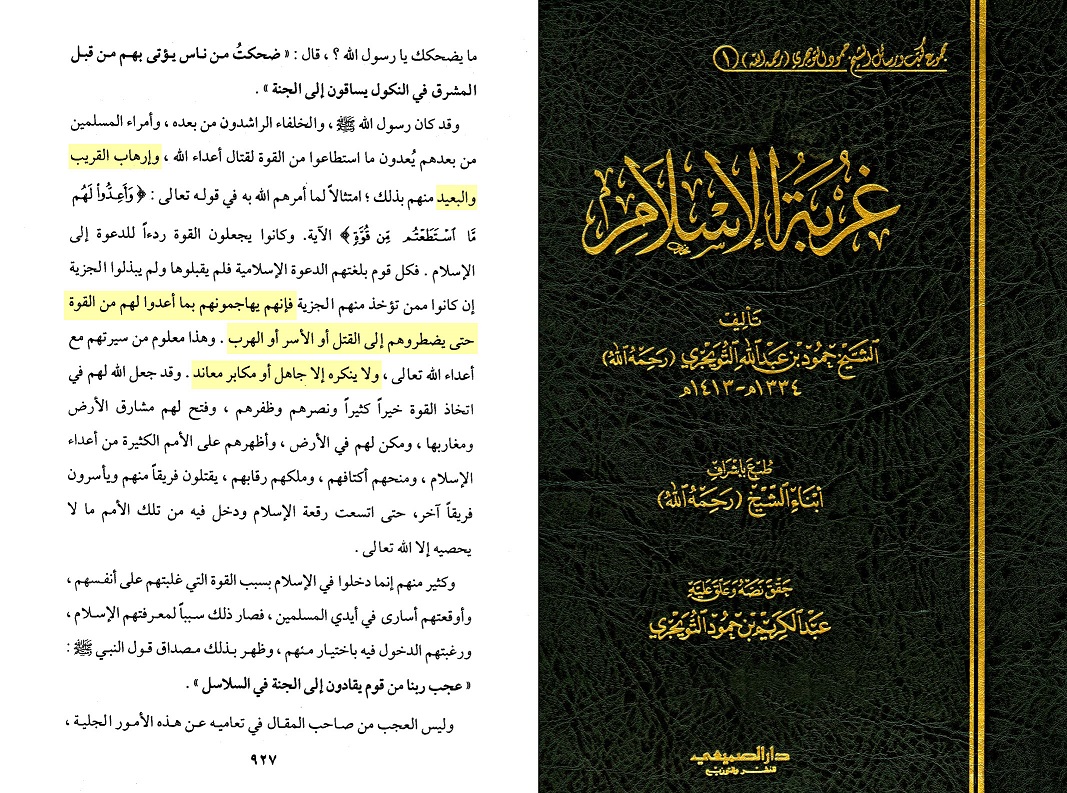 ما يضحكك يا رسول الله ؟ ، قال : « ضحكتُ من ناس يؤتى بهم من قبل
المشرق في النكول يساقون إلى الجنة » .
وقد كان رسول الله ﷺ ، والخلفاء الراشدون من بعده ، وأمراء المسلمين
من بعدهم يُعدون ما استطاعوا من القوة لقتال أعداء الله ، وإرهاب القريب
والبعيد منهم بذلك ؛ امتثالاً لما أمرهم الله به في قوله تعالى : ﴿ وَأَعِدُّوا۟ لَهُم
مَّا ٱسْتَطَعْتُم مِّن قُوَّةٍ ﴾ الآية. وكانوا يجعلون القوة ردءاً للدعوة إلى
الإسلام . فكل قوم بلغتهم الدعوة الإسلامية فلم يقبلوها ولم يبذلوا الجزية
إن كانوا ممن تؤخذ منهم الجزية فإنهم يهاجمونهم بما أعدوا لهم من القوة
حتى يضطروهم إلى القتل أو الأسر أو الهرب . وهذا معلوم من سيرتهم مع
أعداء الله تعالى ، ولا ينكره إلا جاهل أو مكابر معاند . وقد جعل الله لهم في
اتخاذ القوة خيراً كثيراً ونصرهم وظفرهم ، وفتح لهم مشارق الأرض
ومغاربها ، ومكن لهم في الأرض ، وأظهرهم على الأمم الكثيرة من أعداء
الإسلام ، ومنحهم أكتافهم ، وملكهم رقابهم ، يقتلون فريقاً منهم ويأسرون
فريقاً آخر، حتى اتسعت رقعة الإسلام ودخل فيه من تلك الأمم ما لا
يحصيه إلا الله تعالى .
وكثير منهم إنما دخلوا في الإسلام بسبب القوة التي غلبتهم على أنفسهم ،
وأوقعتهم أسارى في أيدي المسلمين ، فصار ذلك سبباً لمعرفتهم الإسلام ،
ورغبتهم الدخول فيه باختيار منهم ، وظهر بذلك مصداق قول النبي ﷺ :
« عجب ربنا من قوم يقادون إلى الجنة في السلاسل » .
وليس العجب من صاحب المقال في تعاميه عن هذه الأمور الجلية ،
٩٢٧
مجموع كتب ورسائل الشيخ حمود التويجري (رحمه الله) (١)
غُرْبَةُ الإِسْلَامِ
تأليف
الشيخ حمود بن عبد الله التويجري (رحمه الله)
١٣٣٤هـ-١٤١٣هـ
طُبع بإشراف
أبناء الشيخ (رحمه الله)
حقق نصه وعلق عليه
عبد الكريم بن حمود التويجري
دار الصميعي
للنشر والتوزيع